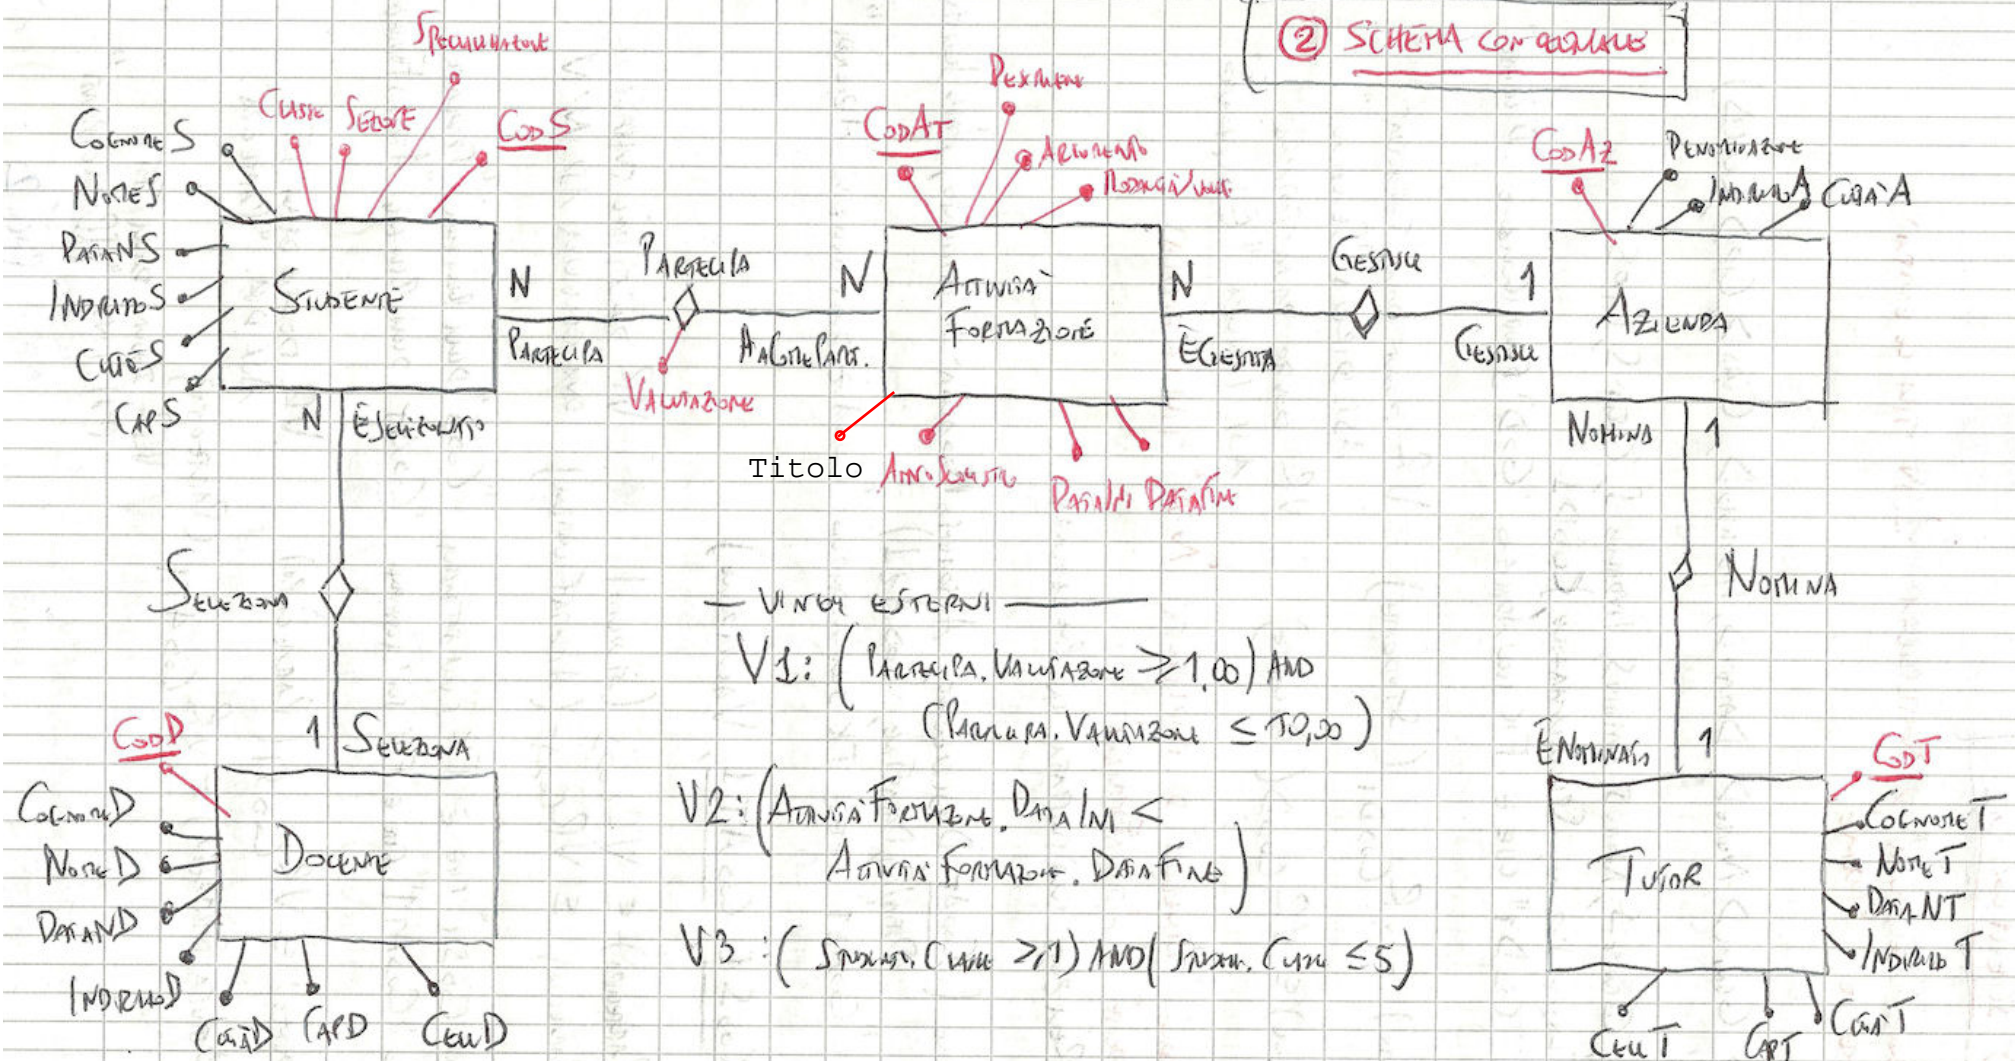 ② SCHEMA CONCETTUALE
Specializzazione
Classe Sezione
CodS
CognomeS
NomeS
DataNS
IndirizzoS
CittàS
CapS
Studente
N
Partecipa
Partecipa
Valutazione
N
HaComePart.
CodAT
Descrizione
Argomento
Attività
Formazione
Titolo
AnnoScolastico
DataIni DataFine
N
ÈGestita
Gestisce
1
Gestisce
CodAz
Denominazione
IndirizzoA CittàA
Azienda
N
ÈSelezionato
Seleziona
1 Seleziona
Nomina 1
Nomina
ÈNominato 1
CodD
CognomeD
NomeD
DataND
IndirizzoD
CittàD CapD CellD
Docente
VINCOLI ESTERNI
V1: (Partecipa.Valutazione ≥ 1,00) AND
(Partecipa.Valutazione ≤ 10,00)
V2: (AttivitàFormazione.DataIni <
AttivitàFormazione.DataFine)
V3: (Studente.Classe ≥ 1) AND (Studente.Classe ≤ 5)
CodT
CognomeT
NomeT
DataNT
IndirizzoT
Tutor
CellT CapT CittàT